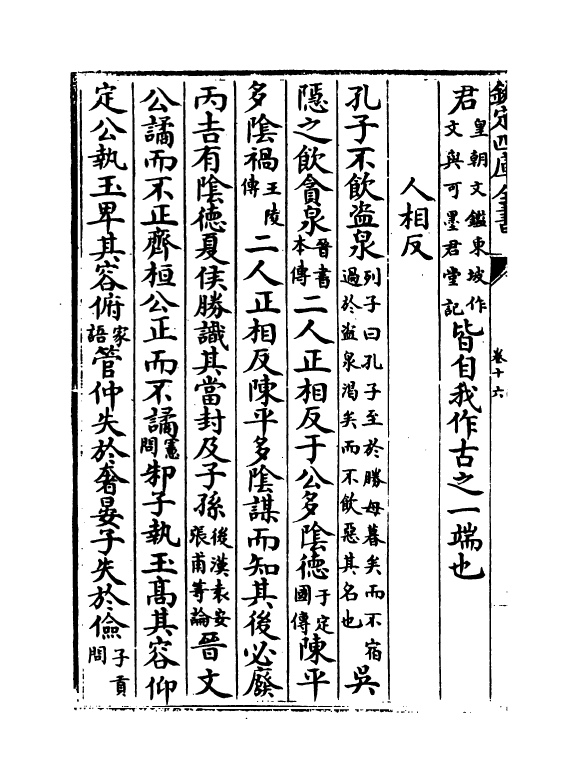 欽定四庫全書 卷十六
君皇朝文鑑東坡作文與可墨君堂記皆自我作古之一端也
人相反
孔子不飲盗泉列子曰孔子至於勝母暮矣而不宿過於盗泉渴矣而不飲惡其名也吳
隱之飲貪泉晉書本傳二人正相反于公多陰德于定國傳陳平
多陰禍王陵傳二人正相反陳平多陰謀而知其後必廢
丙吉有陰德夏侯勝識其當封及子孫後漢袁安張甫等論晉文
公譎而不正齊桓公正而不譎憲問邾子執玉髙其容仰
定公執玉卑其容俯家語管仲失於奢晏子失於儉子貢問